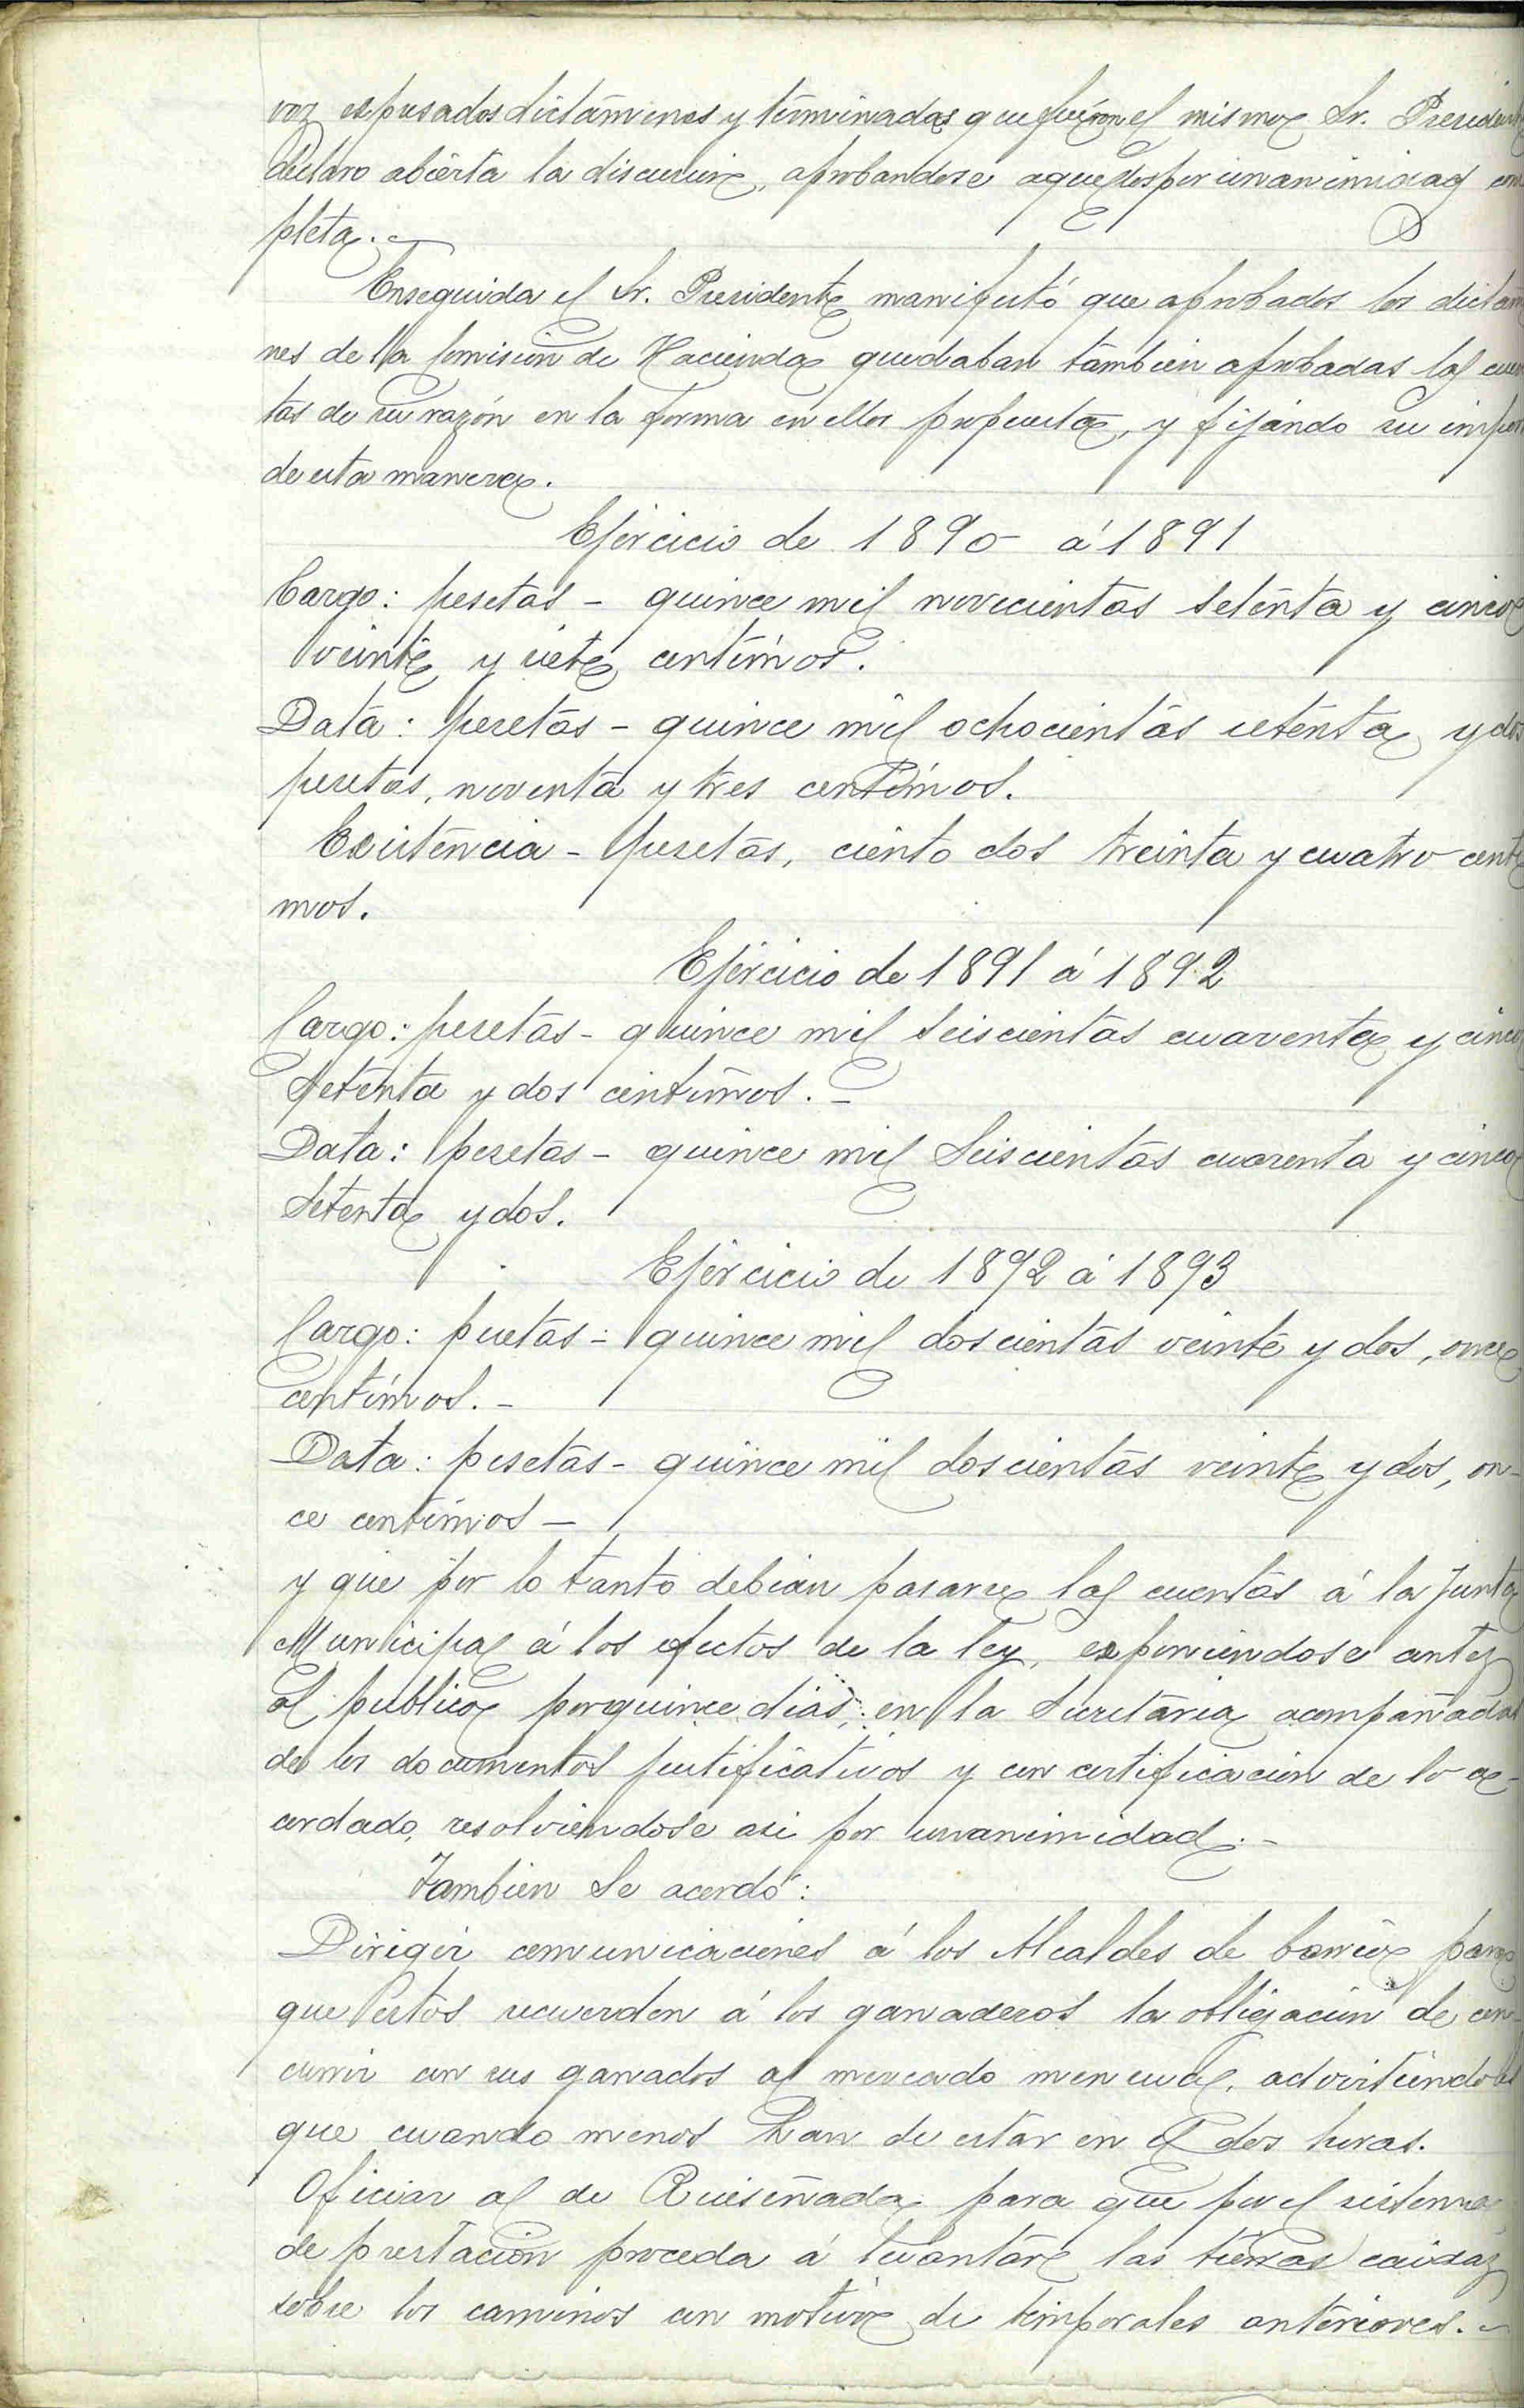 voz expresados dictámenes y terminadas que fueron el mismo Sr. Presidente
declaro abierta la discusion, aprobandose aquellos por unanimidad com
pleta.-
Enseguida el Sr. Presidente manifestó que aprobados los dictame
nes de la Comision de Hacienda quedaban tambien aprobadas las cuen
tas de su razón en la forma en ellos propuesta, y fijando su importe
de esta manera.
Ejercicio de 1890 á 1891
Cargo: pesetas - quince mil novecientas setenta y cinco
veinte y siete centimos.
Data: pesetas - quince mil ochocientas setenta y dos
pesetas, noventa y tres centimos.
Existencia - pesetas, ciento dos treinta y cuatro centi
mos.
Ejercicio de 1891 á 1892
Cargo: pesetas - quince mil seiscientas cuarenta y cinco
setenta y dos centimos. -
Data: pesetas - quince mil Seiscientas cuarenta y cinco
setenta y dos.
Ejercicio de 1892 á 1893
Cargo: pesetas - quince mil doscientas veinte y dos, once
centimos. -
Data: pesetas - quince mil doscientas veinte y dos, on-
ce centimos -
y que por lo tanto debian pasarse las cuentas á la Junta
Municipal á los efectos de la ley, exponiendose antes
al publico por quince dias, en la Secretaria acompañadas
de los documentos justificativos y con certificacion de lo a-
cordado, resolviendose asi por unanimidad. -
Tambien se acordó:
Dirigir comunicaciones á los Alcaldes de barrio para
que estos recuerden á los ganaderos la obligacion de con-
currir con sus ganados al mercado mensual, advirtiendoles
que cuando menos han de estar en el dos horas.
Oficiar al de Ruiseñada para que por el sistema
de prestación proceda á levantar las tierras caidas
sobre los caminos con motivo de temporales anteriores. -